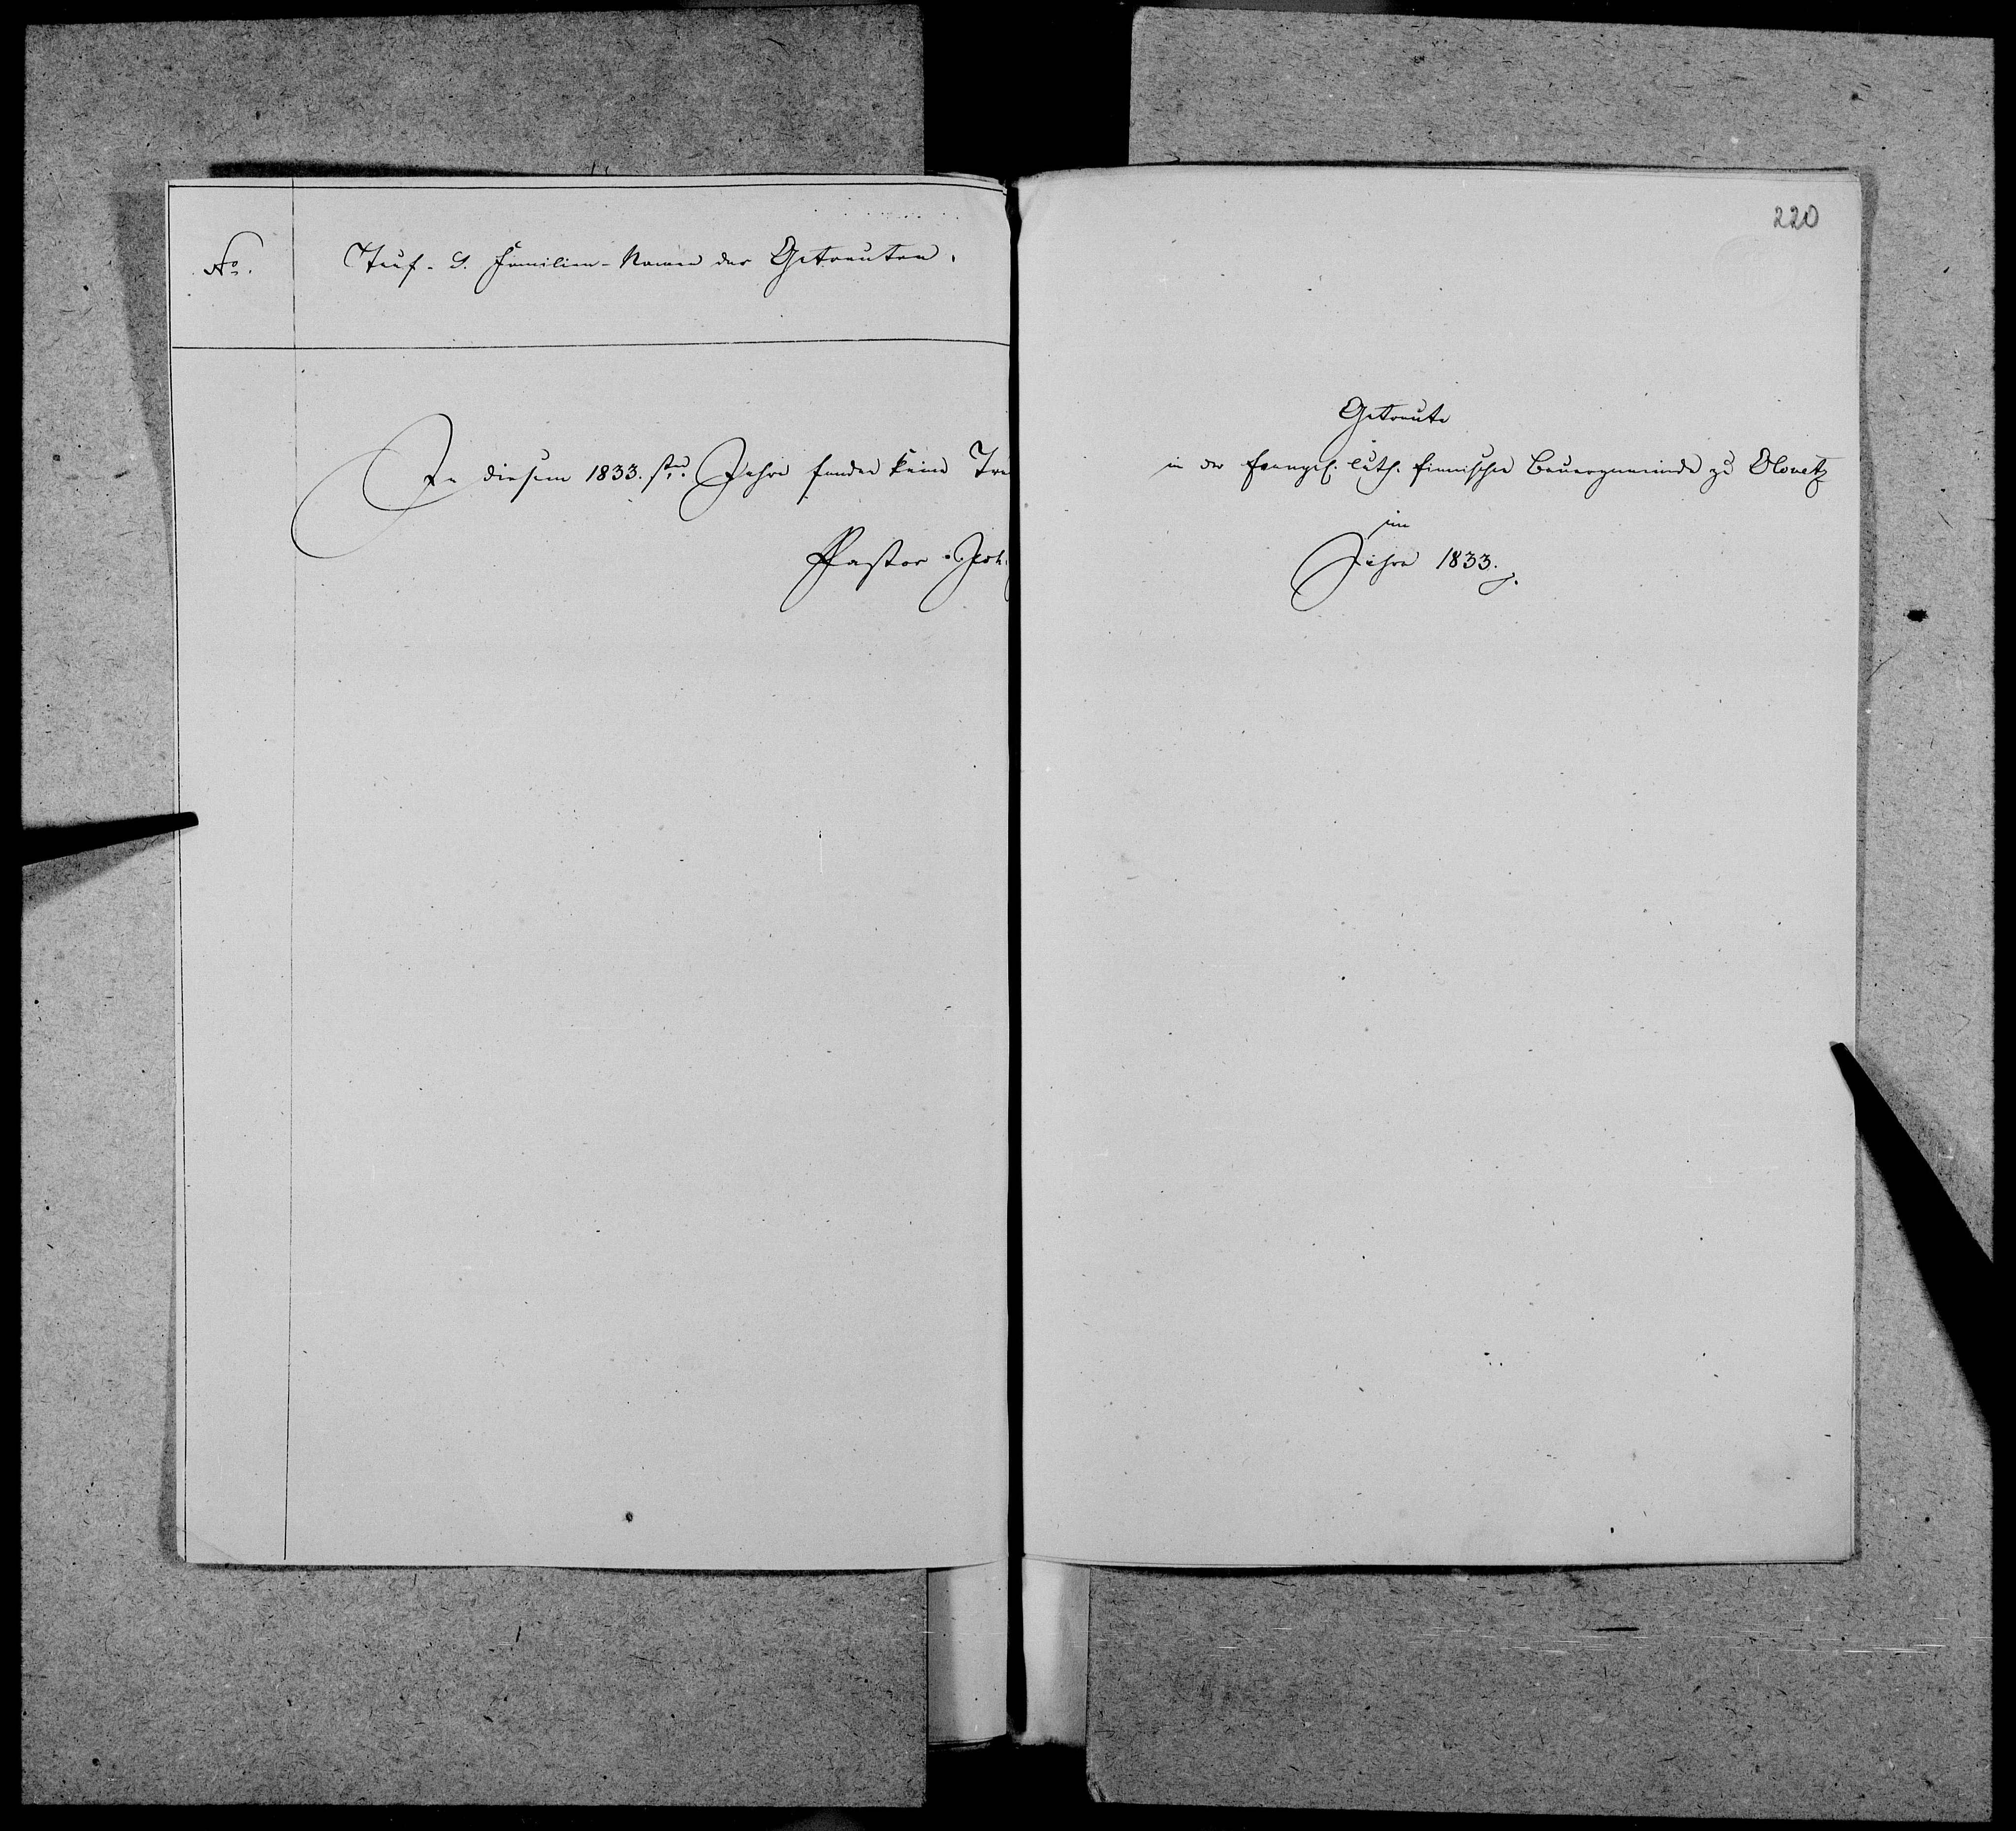 No.
Tauf- u. Familien-Namen der Getrauten.
In diesem 1833.sten Jahre fanden keine Tra
Pastor Joh.
220
Getraute
in der Evangel. luth. finnischen Bauergemeinde zu Olonetz
im
Jahre 1833.